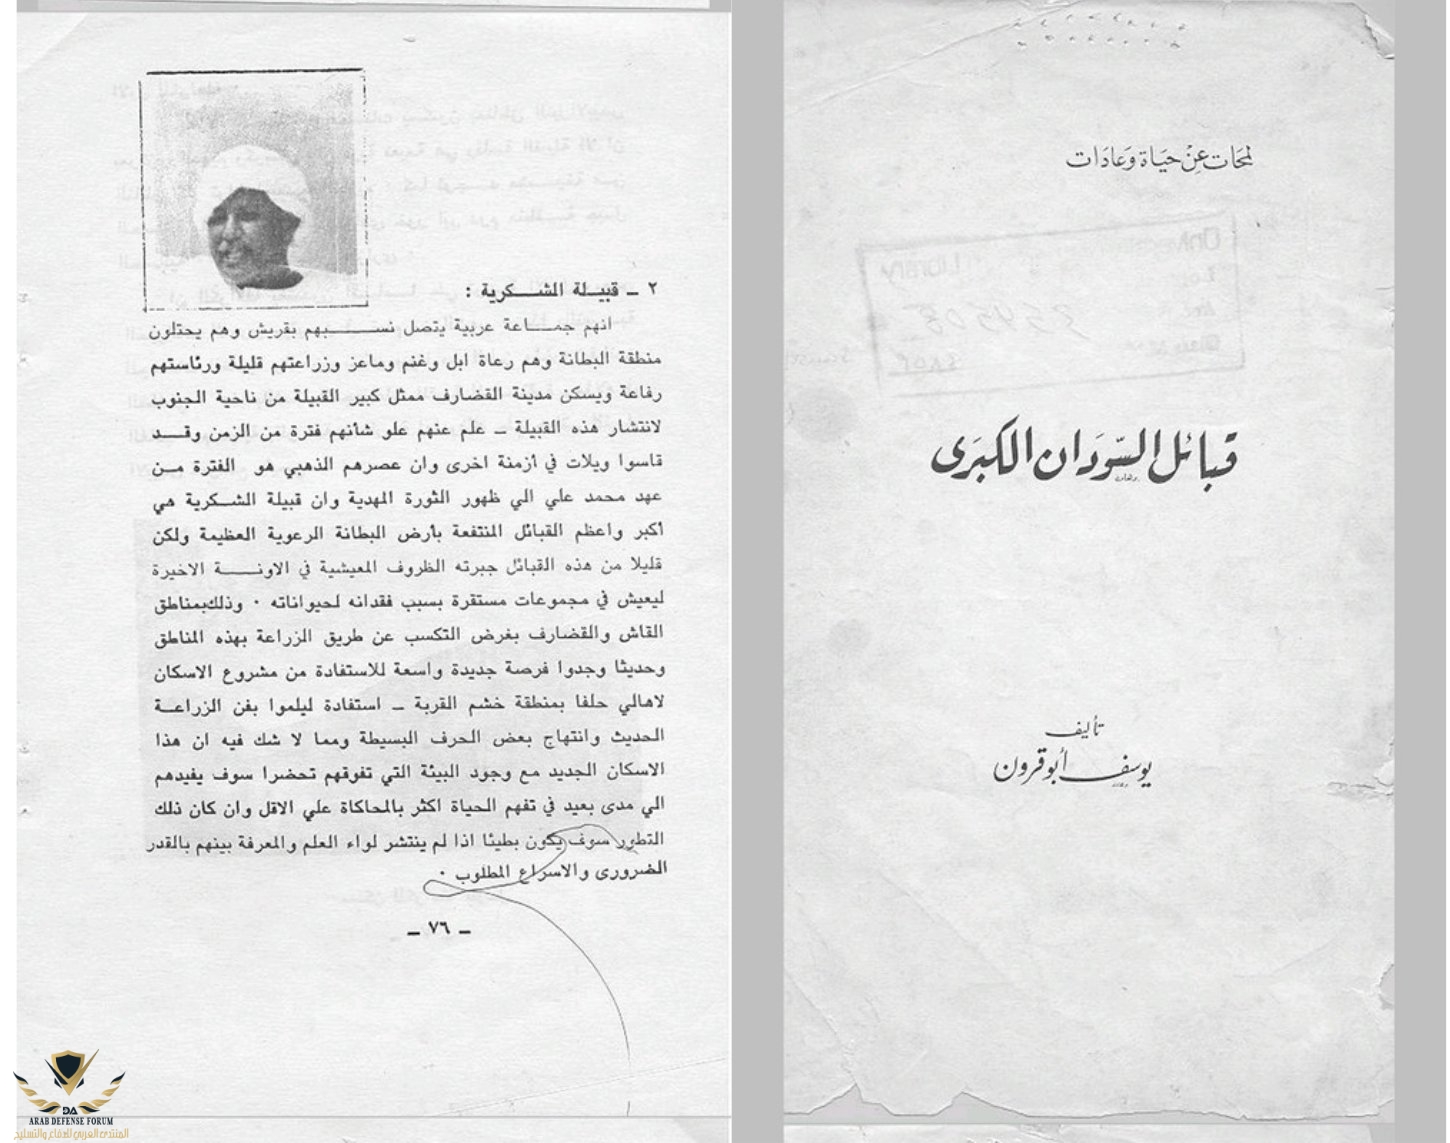 لمحات عن حياة وعادات
قبائل السودان الكبرى
تأليف
يوسف أبو قرون
٢ ــ قبيلة الشكرية :
انهم جماعة عربية يتصل نسبهم بقريش وهم يحتلون
منطقة البطانة وهم رعاة ابل وغنم وماعز وزراعتهم قليلة ورئاستهم
رفاعة ويسكن مدينة القضارف ممثل كبير القبيلة من ناحية الجنوب
لانتشار هذه القبيلة ــ علم عنهم علو شأنهم فترة من الزمن وقد
قاسوا ويلات في أزمنة اخرى وان عصرهم الذهبي هو الفترة من
عهد محمد علي الي ظهور الثورة المهدية وان قبيلة الشكرية هي
أكبر واعظم القبائل المنتفعة بأرض البطانة الرعوية العظيمة ولكن
قليلا من هذه القبائل جبرته الظروف المعيشية في الاونة الاخيرة
ليعيش في مجموعات مستقرة بسبب فقدانه لحيواناته ٠ وذلك بمناطق
القاش والقضارف بغرض التكسب عن طريق الزراعة بهذه المناطق
وحديثا وجدوا فرصة جديدة واسعة للاستفادة من مشروع الاسكان
لاهالي حلفا بمنطقة خشم القربة ــ استفادة ليلموا بفن الزراعة
الحديث وانتهاج بعض الحرف البسيطة ومما لا شك فيه ان هذا
الاسكان الجديد مع وجود البيئة التي تفوقهم تحضرا سوف يفيدهم
الي مدى بعيد في تفهم الحياة اكثر بالمحاكاة علي الاقل وان كان ذلك
التطور سوف يكون بطيئا اذا لم ينتشر لواء العلم والمعرفة بينهم بالقدر
الضرورى والاسراع المطلوب ٠
ــ ٧٦ ــ
DA
ARAB DEFENSE FORUM
المنتدى العربي للدفاع والتسليح